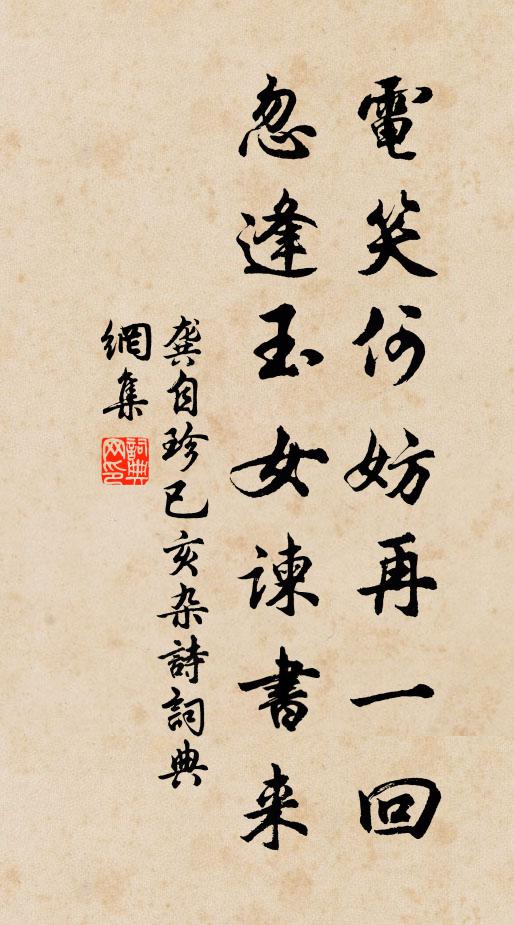 電笑何妨再一回
忽逢玉女諫書来
龔自珍已亥杂詩詞典
網集
詞典网印